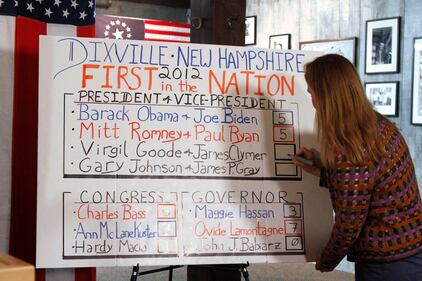 DIXVILLE · NEW HAMPSHIRE
FIRST 2012 in the NATION
PRESIDENT & VICE-PRESIDENT
Barack Obama & Joe Biden 5
Mitt Romney & Paul Ryan 5
Virgil Goode & James Clymer
Gary Johnson & James P Gray
CONGRESS
Charles Bass
Ann McLane Kuster
Hardy Macia
GOVERNOR
Maggie Hassan 3
Ovide Lamontagne 7
John J. Babiarz 0